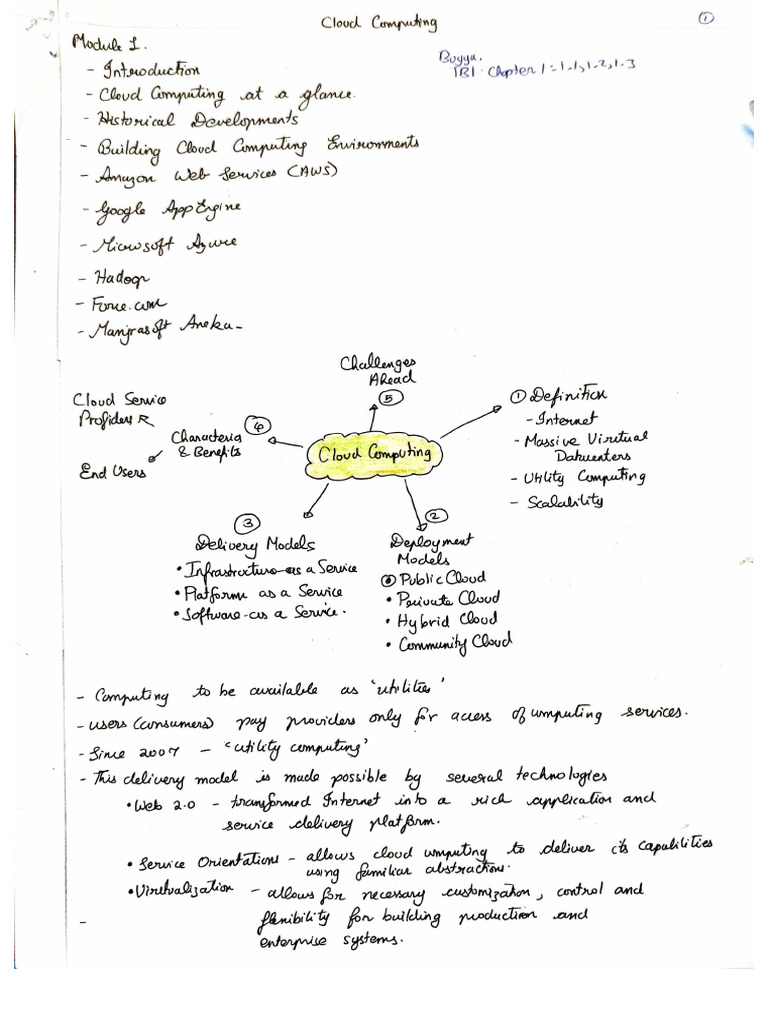 Cloud Computing
1
Module 1.
Buyya.
TB1: Chapter 1 = 1.1, 1.2, 1.3
- Introduction
- Cloud Computing at a glance.
- Historical Developments
- Building Cloud Computing Environments
- Amazon Web Services (AWS)
- Google AppEngine
- Microsoft Azure
- Hadoop
- Force.com
- Manjrasoft Aneka -
Challenges
Ahead
5
Cloud Service
Providers
4
Characteris
& Benefits
End Users
Cloud Computing
1 Definition
- Internet
- Massive Virutual
Datacenters
- Utility Computing
- Scalability
3
Delivery Models
• Infrastructure-as a Service
• Platform as a Service
• Software-as a Service.
2
Deployment
Models
• Public Cloud
• Private Cloud
• Hybrid Cloud
• Community Cloud
- Computing to be available as 'utilities'
- users (consumers) pay providers only for access of computing services.
- Since 2007 - 'utility computing'
- This delivery model is made possible by several technologies
• Web 2.0 - transformed Internet into a rich application and
service delivery platform.
• Service Orientations - allows cloud computing to deliver its capabilities
using familiar abstractions.
• Virtualization - allows for necessary customization, control and
flexibility for building production and
enterprise systems.
-